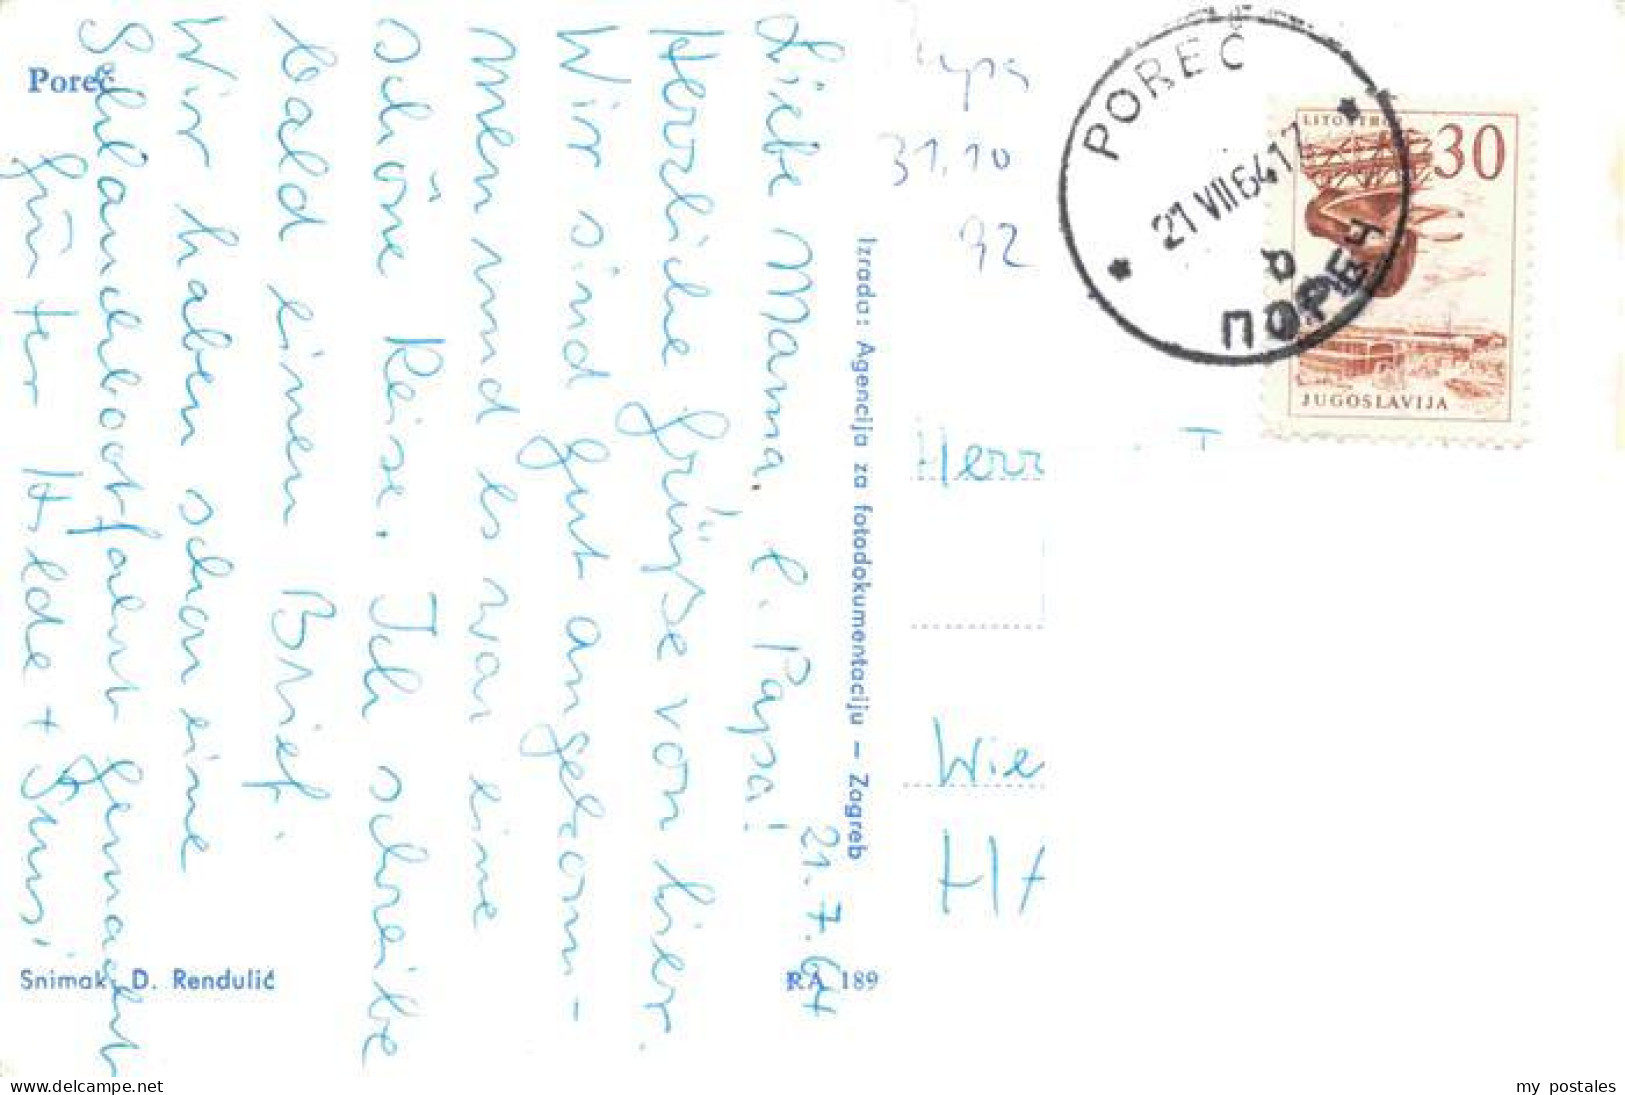 Poreč
21.7.64
Liebe Mama, l. Papa!
Herzliche Grüße von hier.
Wir sind gut angekom-
men und es war eine
schöne Reise. Ich schreibe
bald einen Brief.
Wir haben schon eine
Schlauchbootfahrt gemacht
Günter Hilde + Susi
Snimak D. Rendulić
RA 189
Izrada: Agencija za fotodokumentaciju – Zagreb
31.10
92
POREČ
21 VII 64 17
b
ПОРЕЧ
LITOSTROJ
30
JUGOSLAVIJA
Herr
Wie
www.delcampe.net
my postales